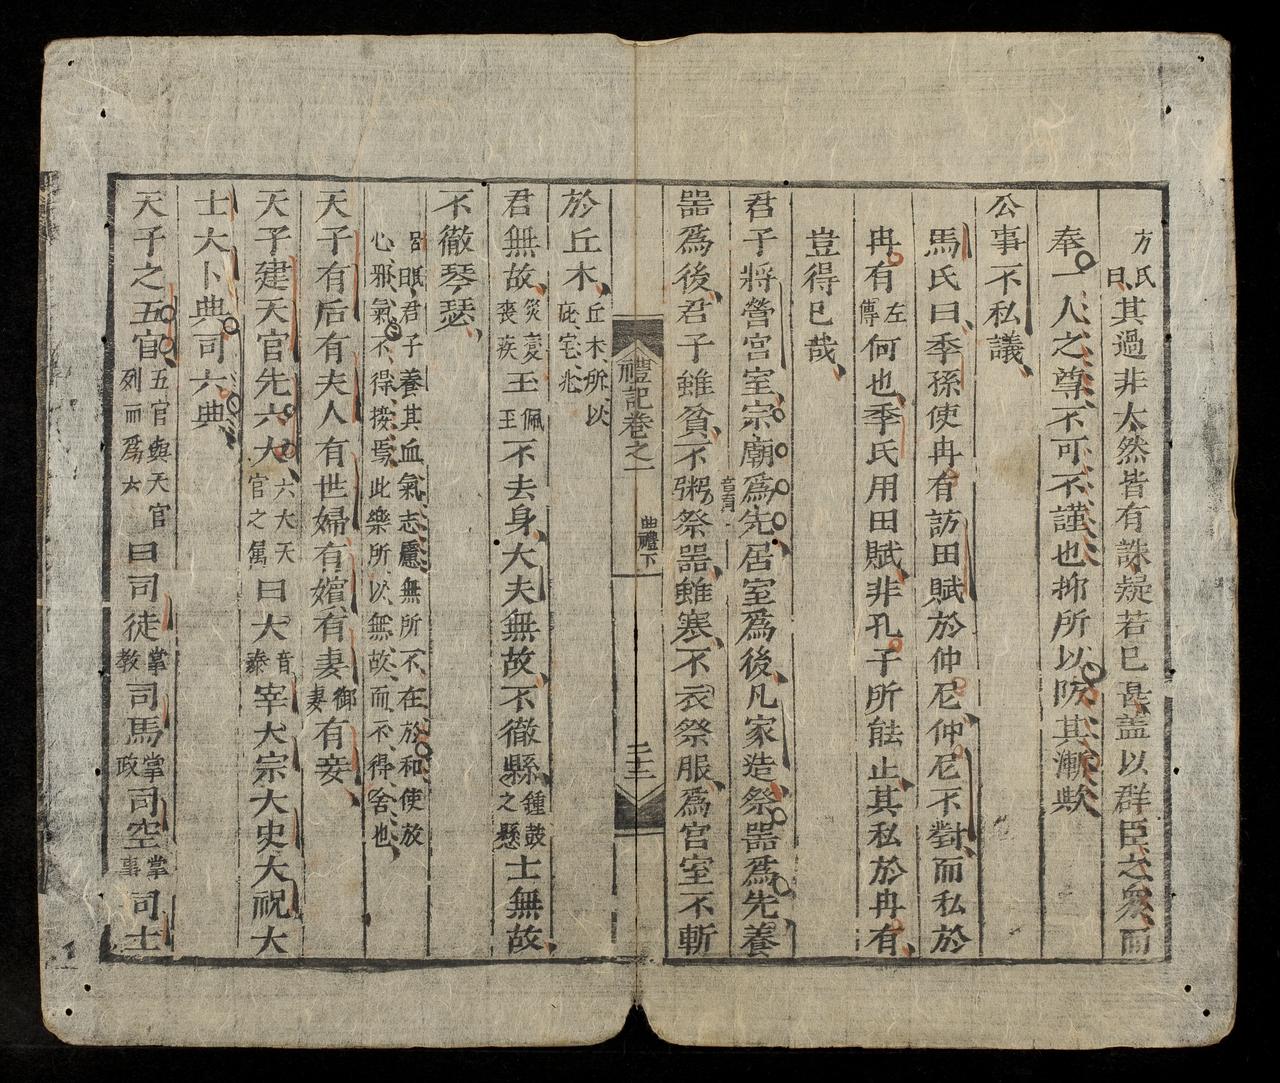 方氏曰其過非大然皆有誅疑若已甚蓋以群臣之衆而
奉一人之尊不可不謹也抑所以防其漸歟
公事不私議
馬氏曰季孫使冉有訪田賦於仲尼仲尼不對而私於
冉有左傳何也季氏用田賦非孔子所能止其私於冉有
豈得已哉
君子將營宮室宗廟爲先居室爲後凡家造祭器爲先養
器爲後君子雖貧不粥音育祭器雖寒不衣祭服爲宮室不斬
禮記卷之一 曲禮下 二十三
於丘木丘木所以庇宅兆
君無故災變喪疾玉佩玉不去身大夫無故不徹縣鍾鼓之懸士無故
不徹琴瑟
呂氏君子養其血氣志慮無所不在於和使放
心邪氣不得接焉此樂所以無故而不得舍也
天子有后有夫人有世婦有嬪有妻御妻有妾
天子建天官先六大六大天官之屬曰大音泰宰大宗大史大祝大
士大卜典司六典
天子之五官五官與天官列而爲六曰司徒掌教司馬掌政司空掌事司士